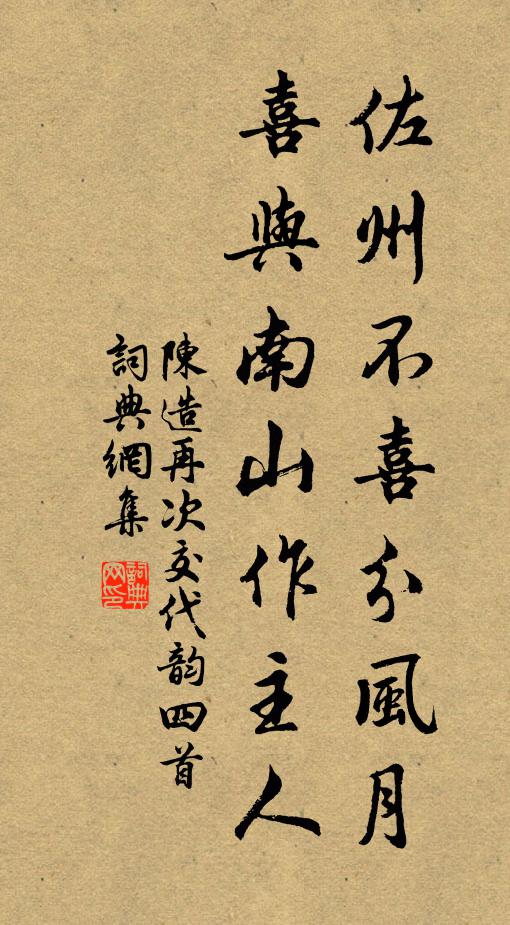 佐州不喜分風月
喜與南山作主人
陳造再次交代韵四首
詞典網集
詞典网印